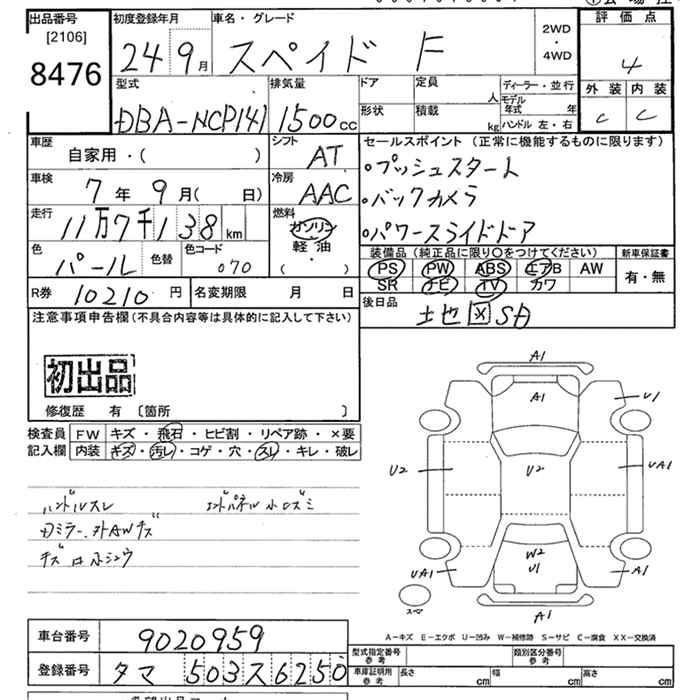 出品番号
[2106]
8476
初度登録年月
24 9月
車名・グレード
スペイド F
2WD
・
4WD
評価点
4
外装 内装
C C
型式
DBA-NCP141
排気量
1500cc
ドア
定員
人
形状
積載
kg
ディーラー・並行
モデル年式 年
ハンドル 左・右
車歴
自家用・( )
シフト
AT
車検
7年 9月( 日)
冷房
AAC
走行
11万7千138km
燃料
ガソリン
軽油
( ・ )
色
パール
色替
色コード
070
セールスポイント (正常に機能するものに限ります)
○プッシュスタート
○バックカメラ
○パワースライドドア
装備品 (純正品に限り○をつけてください)
PS PW ABS エアB AW
SR ナビ TV カワ
新車保証書
有・無
R券 10210円
名変期限 月 日
後日品
注意事項申告欄(不具合内容等は具体的に記入して下さい)
初出品
修復歴 有 〔箇所 〕
検査員記入欄
FW キズ・飛石・ヒビ割・リペア跡・×要
内装 キズ・汚レ・コゲ・穴・スレ・キレ・破レ
ハンドルスレ
A1
A1
U1
U2
U2
UA1
W2
U1
UA1
A1
A1
スペア
A-キズ E-エクボ U-凹み W-補修跡 S-サビ C-腐食 XX-交換済
車台番号
9020959
登録番号
タマ 503 ス 6250
型式指定番号
参考
類別区分番号
参考
車庫証明用
参考
長さ cm
幅 cm
高さ cm